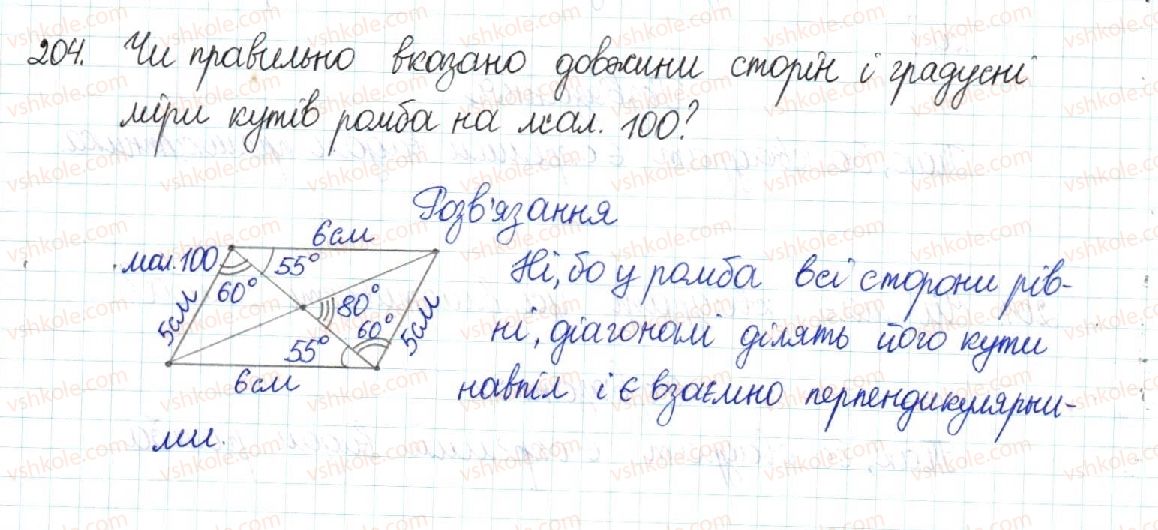 204. Чи правильно вказано довжини сторін і градусні
міри кутів ромба на мал. 100?
Розв'язання
мал. 100
6см
55°
60°
5см
80°
60°
5см
55°
6см
Ні, бо у ромба всі сторони рів-
ні, діагоналі ділять його кути
навпіл і є взаємно перпендикулярни-
ми.
vshkole.com